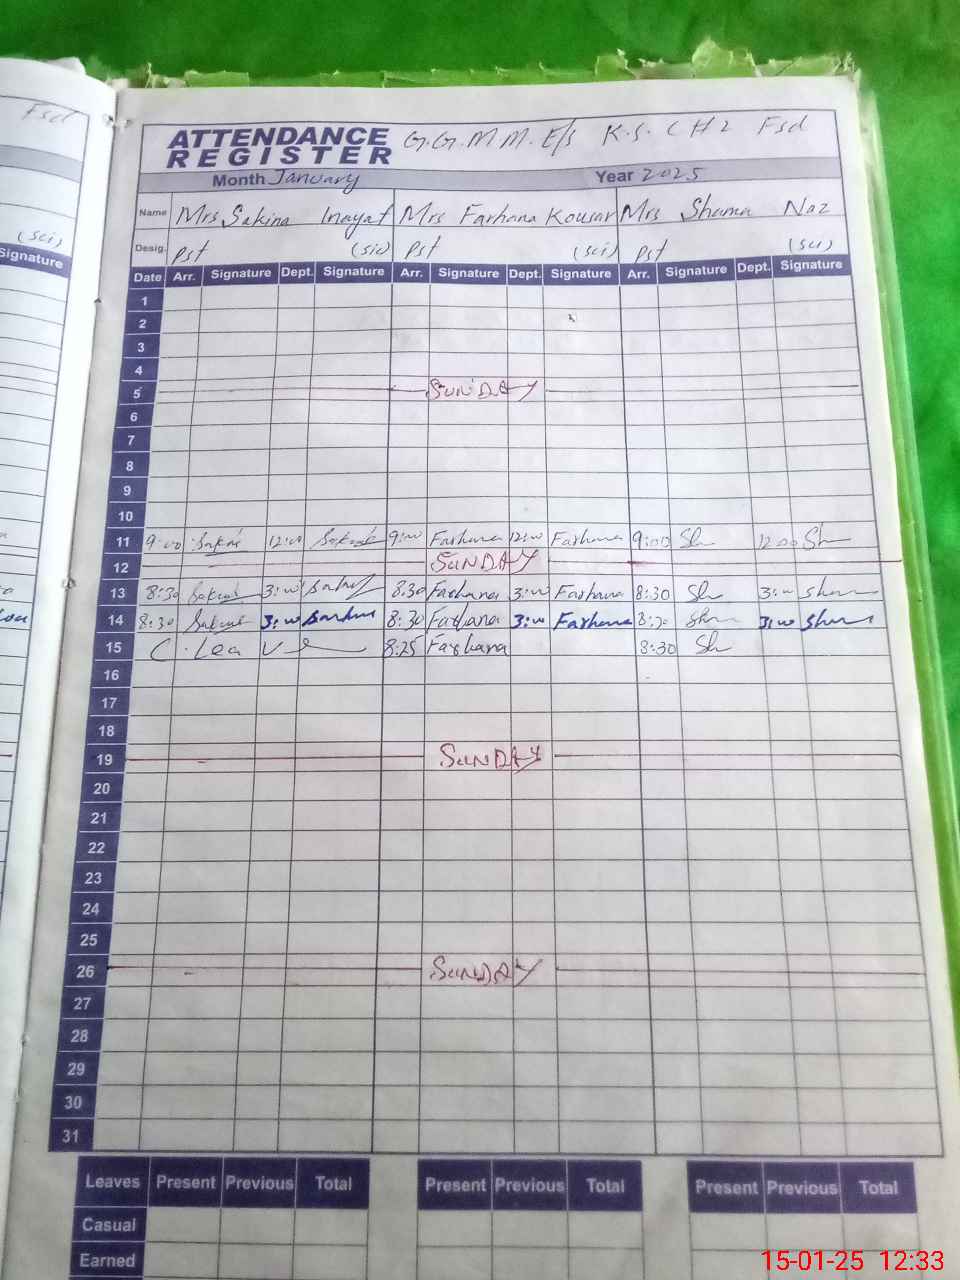 Fsd
(sci)
Signature
ATTENDANCE REGISTER G.G.M.M. E/s K.S. CH2 Fsd
Month January Year 2025
Name Mrs Sakina Inayat Mrs Farhana Kousar Mrs Shama Naz
Desig. Pst (sic) Pst (sci) Pst (sci)
Date Arr. Signature Dept. Signature Arr. Signature Dept. Signature Arr. Signature Dept. Signature
1
2
3
4
5 SUNDAY
6
7
8
9
10
11 9:00 Sakina 12:00 Sakina 9:00 Farhana 12:00 Farhana 9:00 Sh 12:00 Sh
12 SUNDAY
13 8:30 3:00 8:30 Farhana 3:00 Farhana 8:30 Sh 3:00 Sham
14 8:30 3:00 8:30 Farhana 3:00 Farhana 8:30 Sham 3:00 Sham
15 C. Leave 8:25 Farhana 8:30 Sh
16
17
18
19 SUNDAY
20
21
22
23
24
25
26 SUNDAY
27
28
29
30
31
Leaves Present Previous Total Present Previous Total Present Previous Total
Casual
Earned
15-01-25 12:33